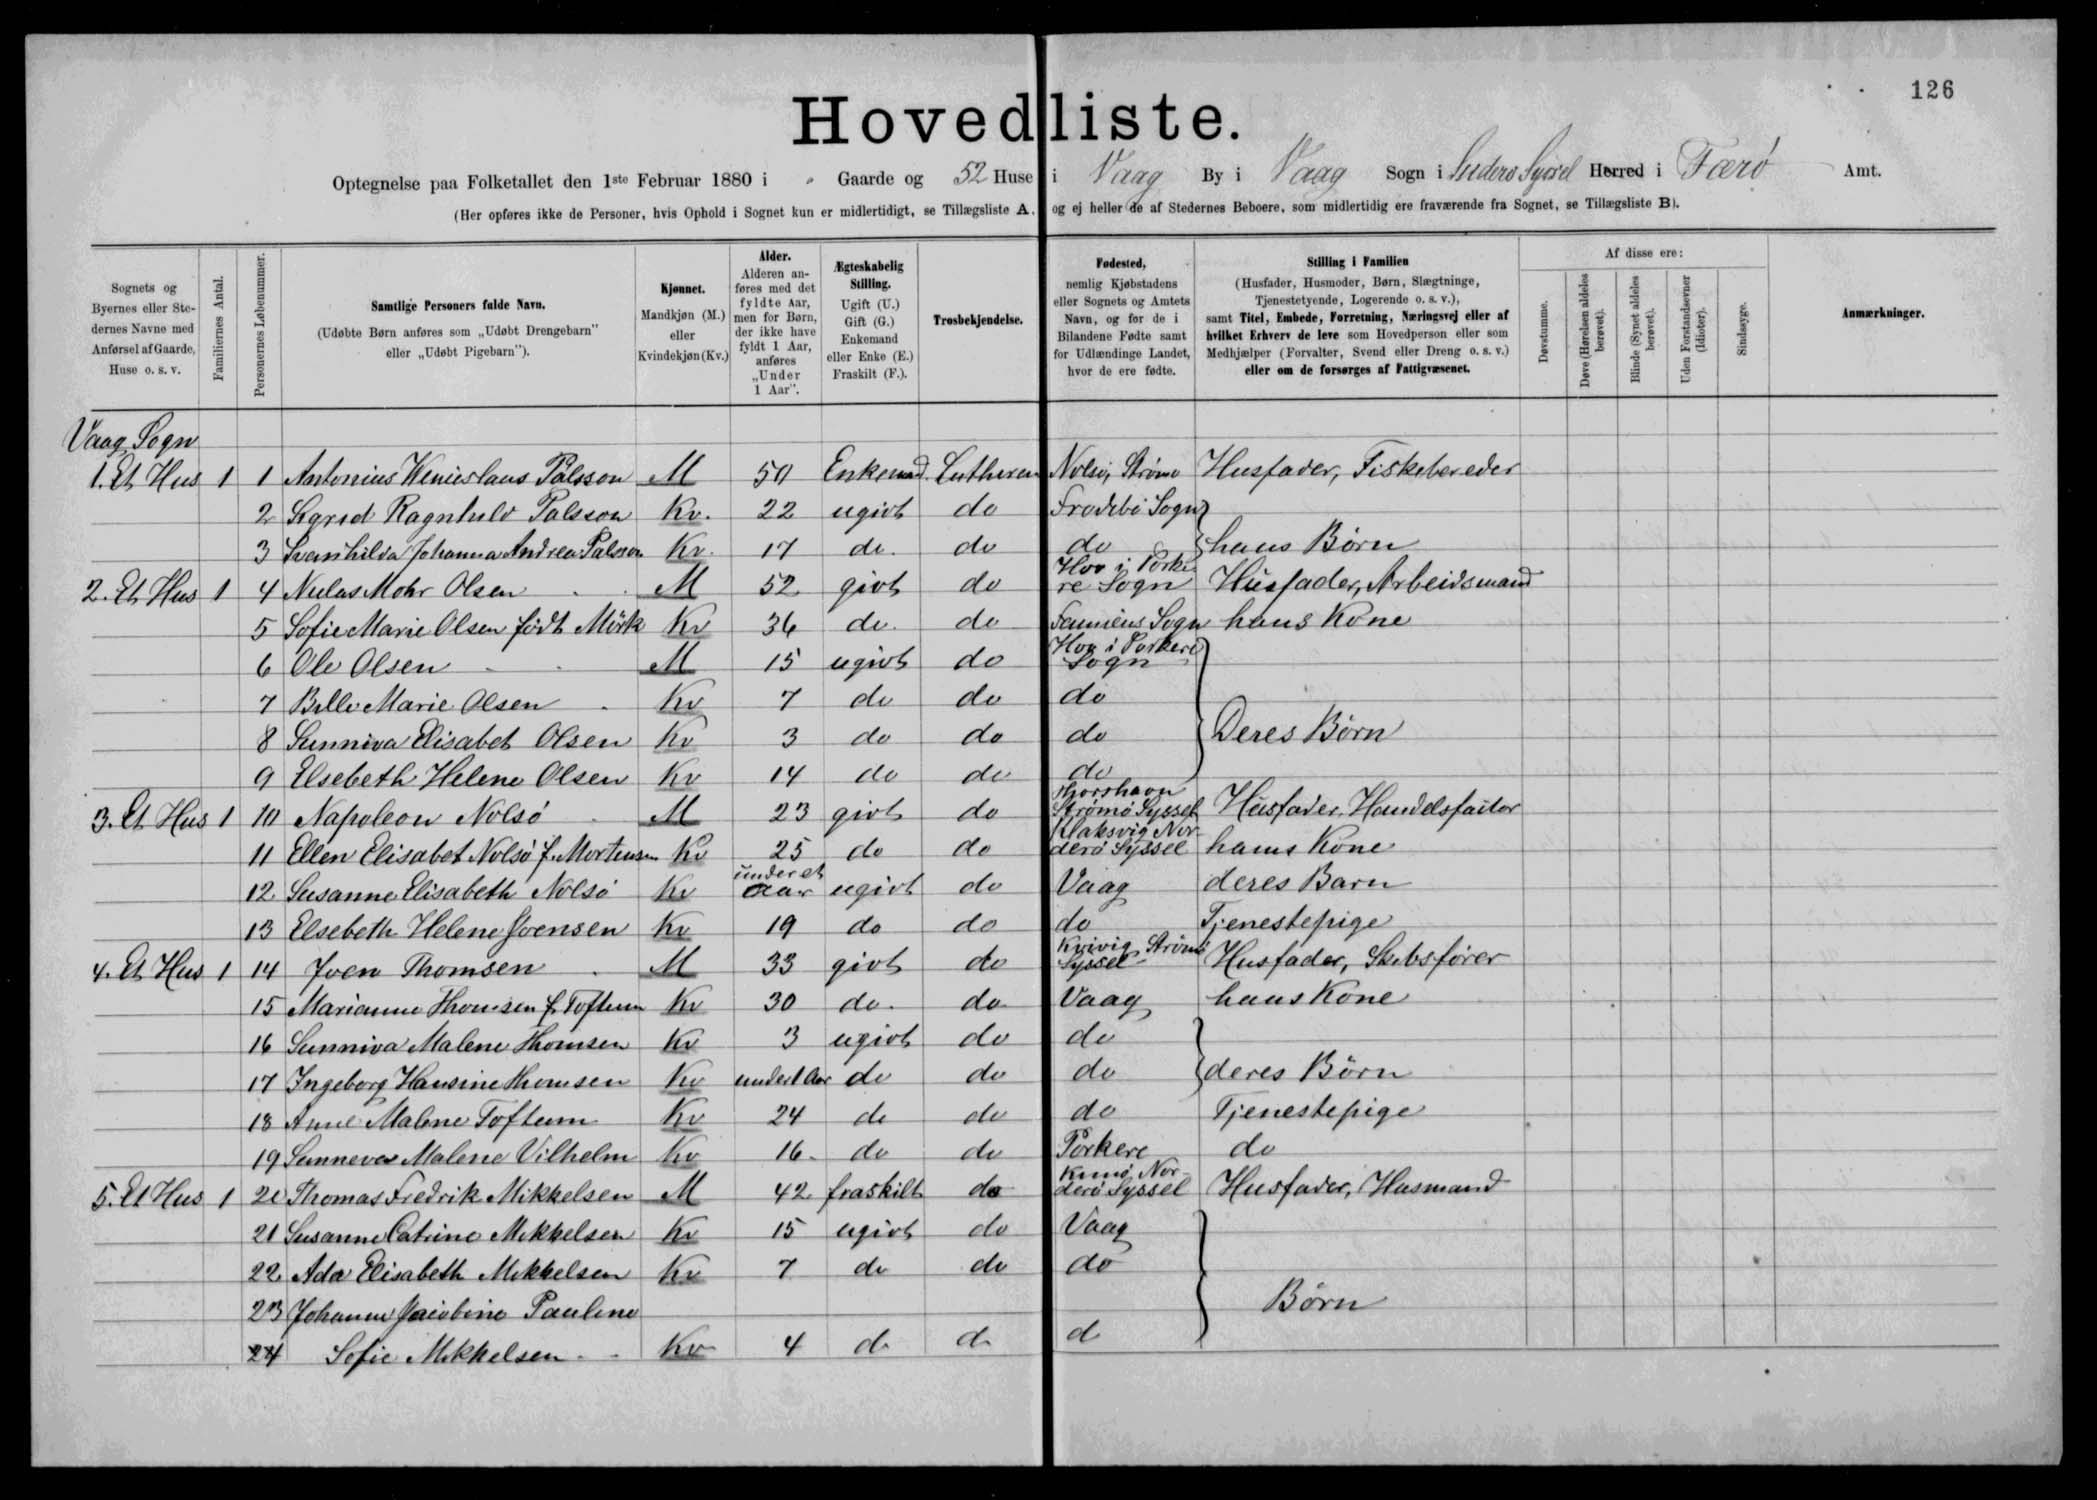 126
Hovedliste.
Optegnelse paa Folketallet den 1ste Februar 1880 i - Gaarde og 52 Huse i Vaag By i Vaag Sogn i Suderø Syssel Herred i Færø Amt.
(Her opføres ikke de Personer, hvis Ophold i Sognet kun er midlertidigt, se Tillægsliste A, og ej heller de af Stedernes Beboere, som midlertidig ere fraværende fra Sognet, se Tillægsliste B).
Sognets og Byernes eller Stedernes Navne med Anførsel af Gaarde, Huse o. s. v.
Familiernes Antal.
Personernes Løbenummer.
Samtlige Personers fulde Navn.
(Udøbte Børn anføres som „Udøbt Drengebarn" eller „Udøbt Pigebarn").
Kjønnet.
Mandkjøn (M.) eller Kvindekjøn (Kv.)
Alder.
Alderen anføres med det fyldte Aar, men for Børn, der ikke have fyldt 1 Aar, anføres „Under 1 Aar".
Ægteskabelig Stilling.
Ugift (U.) Gift (G.) Enkemand eller Enke (E.) Fraskilt (F.).
Trosbekjendelse.
Fødested,
nemlig Kjøbstadens eller Sognets og Amtets Navn, og for de i Bilandene Fødte samt for Udlændinge Landet, hvor de ere fødte.
Stilling i Familien
(Husfader, Husmoder, Børn, Slægtninge, Tjenestetyende, Logerende o. s. v.),
samt Titel, Embede, Forretning, Næringsvej eller af hvilket Erhverv de leve som Hovedperson eller som Medhjælper (Forvalter, Svend eller Dreng o. s. v.) eller om de forsørges af Fattigvæsenet.
Af disse ere:
Døvstumme.
Døve (Hørelsen aldeles berøvet).
Blinde (Synet aldeles berøvet).
Uden Forstandsevner (Idioter).
Sindssyge.
Anmærkninger.
Vaag Sogn
1. Et Hus 1 1 Antonius Palsson M 50 Enkemd. Lutheren Nolsø, Strømø Husfader, Fiskebereder
2 Sigrid Ragnhild Palsson Kv. 22 ugivt do Frodebø Sogn
3 Svanhilda Johanna Andrea Palsson Kv. 17 do. do do hans Børn
2. Et Hus 1 4 Niclas Mohr Olsen M 52 givt do Hov i Porkere Sogn Husfader, Arbeidsmand
5 Sofie Marie Olsen født Mörk Kv 36 do. do Sogn hans Kone
6 Ole Olsen M 15 ugivt do Hov i Porkere Sogn
7 Bille Marie Olsen Kv 7 do do do
8 Sunniva Elisabet Olsen Kv 3 do do do Deres Børn
9 Elsebeth Helene Olsen Kv 14 do do do
3. Et Hus 1 10 Napoleon Nolsö M 23 givt do Thorshavn Strømø Syssel Husfader, Handelsfactor
11 Ellen Elisabet Nolsö f. Mortensen Kv 25 do do Klaksvig Norderø Syssel hans Kone
12 Susanne Elisabeth Nolsö Kv under et aar ugivt do Vaag deres Barn
13 Elsebeth Helene Joensen Kv 19 do do do Tjenestepige
4. Et Hus 1 14 Joen Thomsen M 33 givt do Kvivig Strømø Syssel Husfader, Skibsfører
15 Marianne Thomsen f. Toftum Kv 30 do. do Vaag hans Kone
16 Sunniva Malene Thomsen Kv 3 ugivt do do
17 Ingeborg Hansine Thomsen Kv under 1 Aar do do do deres Børn
18 Anne Malene Toftum Kv 24 do do do Tjenestepige
19 Sunneva Malene Vilhelm Kv 16 do do Porkere do
5. Et Hus 1 20 Thomas Fredrik Mikkelsen M 42 fraskilt do Kunø Norderø Syssel Husfader, Husmand
21 Susanne Catrine Mikkelsen Kv 15 ugivt do Vaag
22 Ada Elisabeth Mikkelsen Kv 7 do do do
23 Johanne Jacobine Pauline Børn
24 Sofie Mikkelsen Kv 4 d. d. d